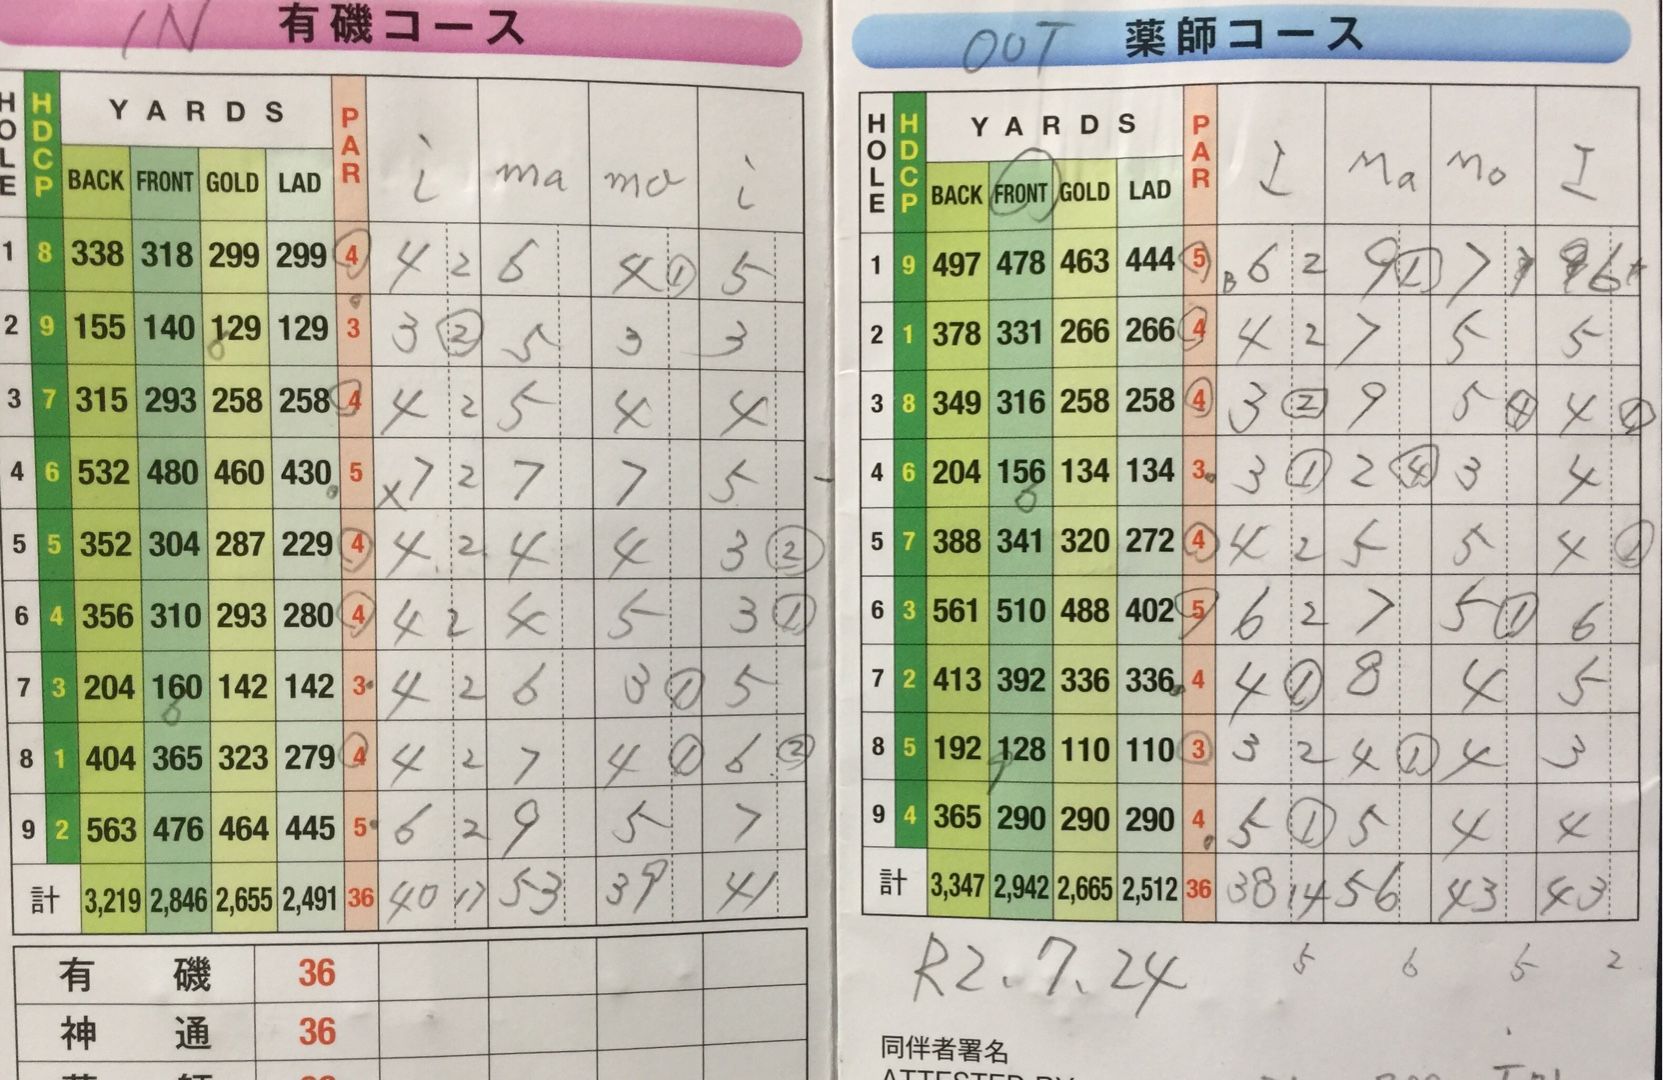 IN 有磯コース
HOLE HDCP YARDS PAR
BACK FRONT GOLD LAD i ma mo i
1 8 338 318 299 299 4 4 2 6 4 ① 5
2 9 155 140 129 129 3 3 ② 5 3 3
3 7 315 293 258 258 4 4 2 5 4 4
4 6 532 480 460 430 5 x7 2 7 7 5
5 5 352 304 287 229 4 4 2 4 4 3 ②
6 4 356 310 293 280 4 4 2 4 5 3 ①
7 3 204 160 142 142 3 4 2 6 3 ① 5
8 1 404 365 323 279 4 4 2 7 4 ① 6 ②
9 2 563 476 464 445 5 6 2 9 5 7
計 3,219 2,846 2,655 2,491 36 40 17 53 39 41
有磯 36
神通 36
OUT 薬師コース
HOLE HDCP YARDS PAR
BACK FRONT GOLD LAD I Ma Mo I
1 9 497 478 463 444 5 B 6 2 9 ① 7 6
2 1 378 331 266 266 4 4 2 7 5 5
3 8 349 316 258 258 4 3 ② 9 5 4
4 6 204 156 134 134 3 3 ① 2 ④ 3 4
5 7 388 341 320 272 4 4 2 5 5 4 ①
6 3 561 510 488 402 5 6 2 7 5 ① 6
7 2 413 392 336 336 4 4 ① 8 4 5
8 5 192 128 110 110 3 3 2 4 ① 4 3
9 4 365 290 290 290 4 5 ① 5 4 4
計 3,347 2,942 2,665 2,512 36 38 14 56 43 43
R2.7.24 5 6 5 2
同伴者署名
ATTESTED BY